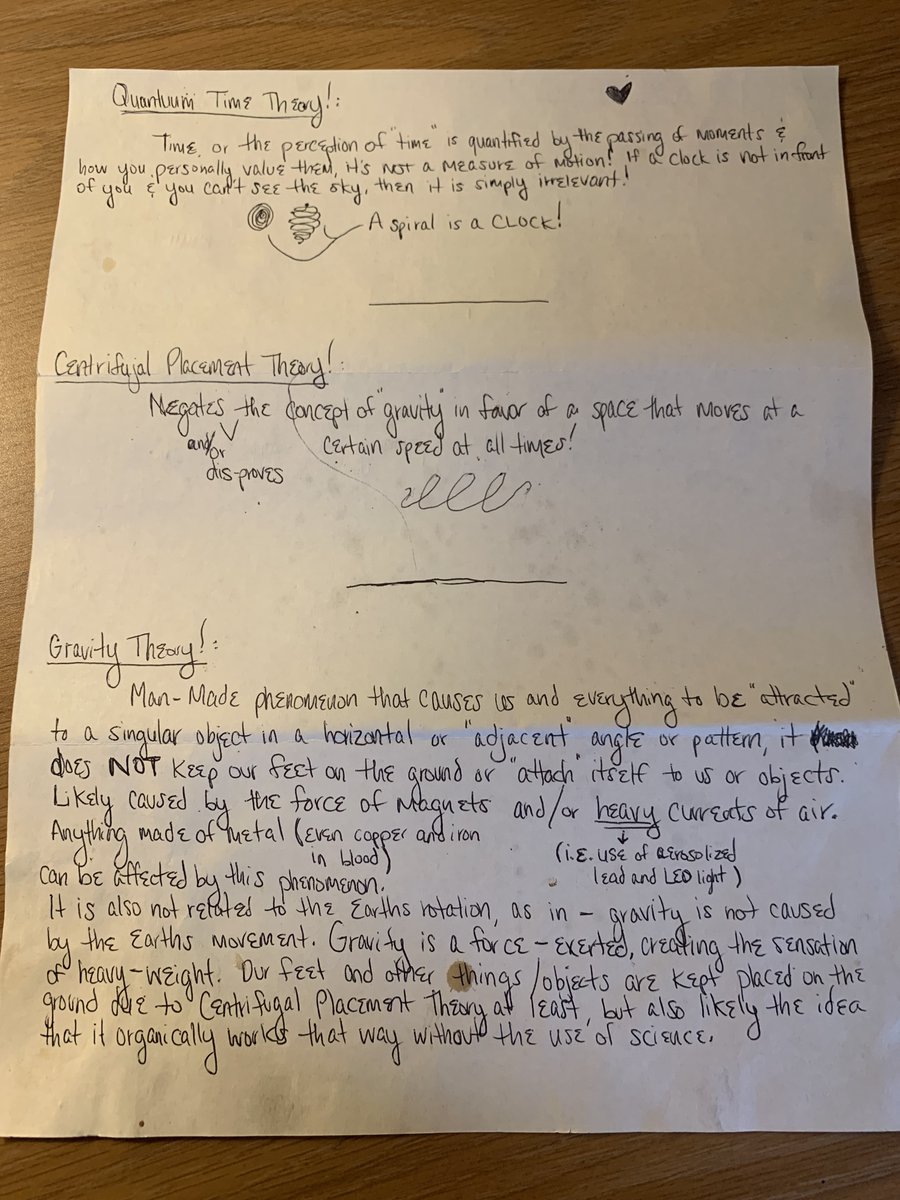 Quantuum Time Theory!:
Time, or the perception of "time" is quantified by the passing of moments &
how you personally value them, it's not a measure of motion! If a clock is not in front
of you & you can't see the sky, then it is simply irrelevant!
A spiral is a CLOCK!
Centrifujal Placement Theory!:
Negates the concept of "gravity" in favor of a space that moves at a
certain speed at all times!
and/or
dis-proves
Gravity Theory!:
Man-Made phenomenon that causes us and everything to be "attracted"
to a singular object in a horizontal or "adjacent" angle or pattern, it
does NOT keep our feet on the ground or "attach" itself to us or objects.
Likely caused by the force of Magnets and/or heavy currents of air.
Anything made of metal (even copper and iron
in blood)
(i.e. use of aerosolized
lead and LED light)
can be affected by this phenomenon.
It is also not related to the Earths rotation, as in - gravity is not caused
by the Earths movement. Gravity is a force-exerted, creating the sensation
of heavy-weight. Our feet and other things/objects are kept placed on the
ground due to Centrifugal Placement Theory at least, but also likely the idea
that it organically works that way without the use of science.